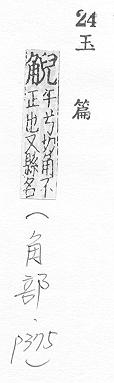 24玉篇
觬
牛兮切角不
正也又縣名
(角部.p375)